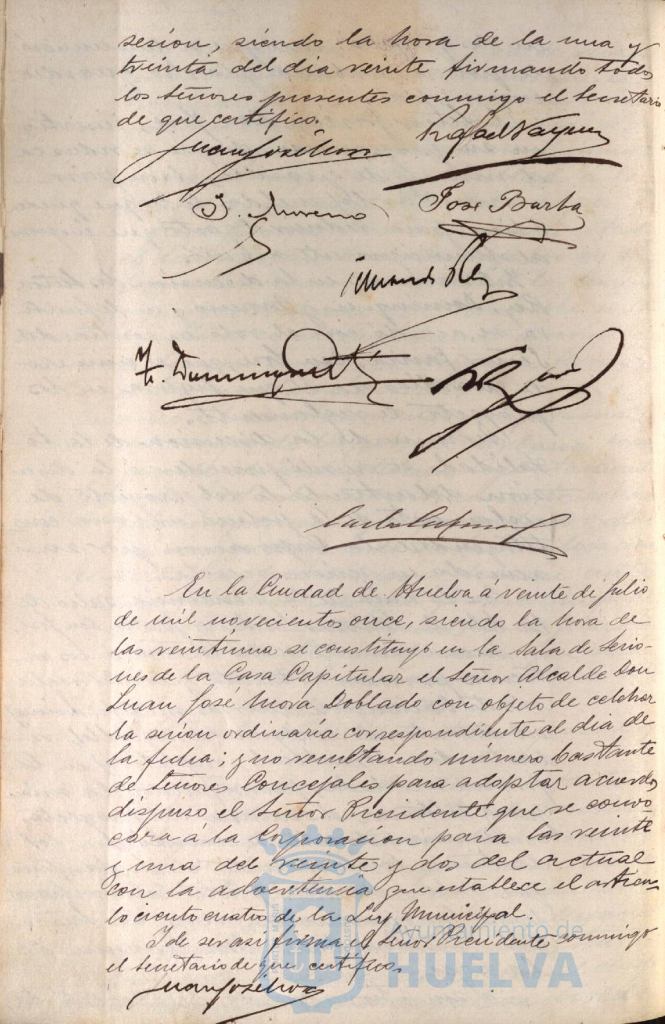 sesion, siendo la hora de la una y
treinta del dia veinte firmando todos
los Señores presentes conmigo el Secretario
de que certifico.
Juan José Mora
Rafael Vazquez
J. Moreno
José Barba
F. Dominguez
En la Ciudad de Huelva á veinte de Julio
de mil novecientos once, siendo la hora de
las veintiuna se constituyó en la Sala de Sesio-
nes de la Casa Capitular el Señor Alcalde Don
Juan José Mora Doblado con objeto de celebrar
la sesion ordinaria correspondiente al dia de
la fecha; y no resultando número bastante
de Señores Concejales para adoptar acuerdos
dispuso el Señor Presidente que se convo
cara á la Corporacion para las veinte
y una del veinte y dos del actual
con la advertencia que establece el articu-
lo ciento cuatro de la Ley Municipal.
Y de ser asi firma el Señor Presidente conmigo
el Secretario de que certifico.
Juan José Mora
Ayuntamiento de
HUELVA